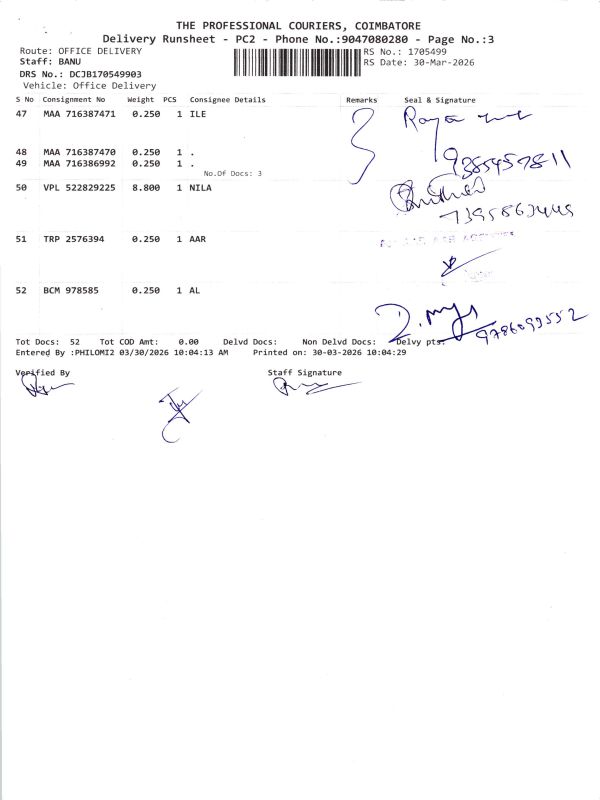 THE PROFESSIONAL COURIERS, COIMBATORE
Delivery Runsheet - PC2 - Phone No.:9047080280 - Page No.:3
Route: OFFICE DELIVERY RS No.: 1705499
Staff: BANU RS Date: 30-Mar-2026
DRS No.: DCJB170549903
Vehicle: Office Delivery
S No Consignment No Weight PCS Consignee Details Remarks Seal & Signature
47 MAA 716387471 0.250 1 ILE
48 MAA 716387470 0.250 1 .
49 MAA 716386992 0.250 1 .
9385457811
No.Of Docs: 3
50 VPL 522829225 8.800 1 NILA
51 TRP 2576394 0.250 1 AAR
52 BCM 978585 0.250 1 AL
9786099552
Tot Docs: 52 Tot COD Amt: 0.00 Delvd Docs: Non Delvd Docs: Delvy pts:
Entered By :PHILOMI2 03/30/2026 10:04:13 AM Printed on: 30-03-2026 10:04:29
Verified By Staff Signature